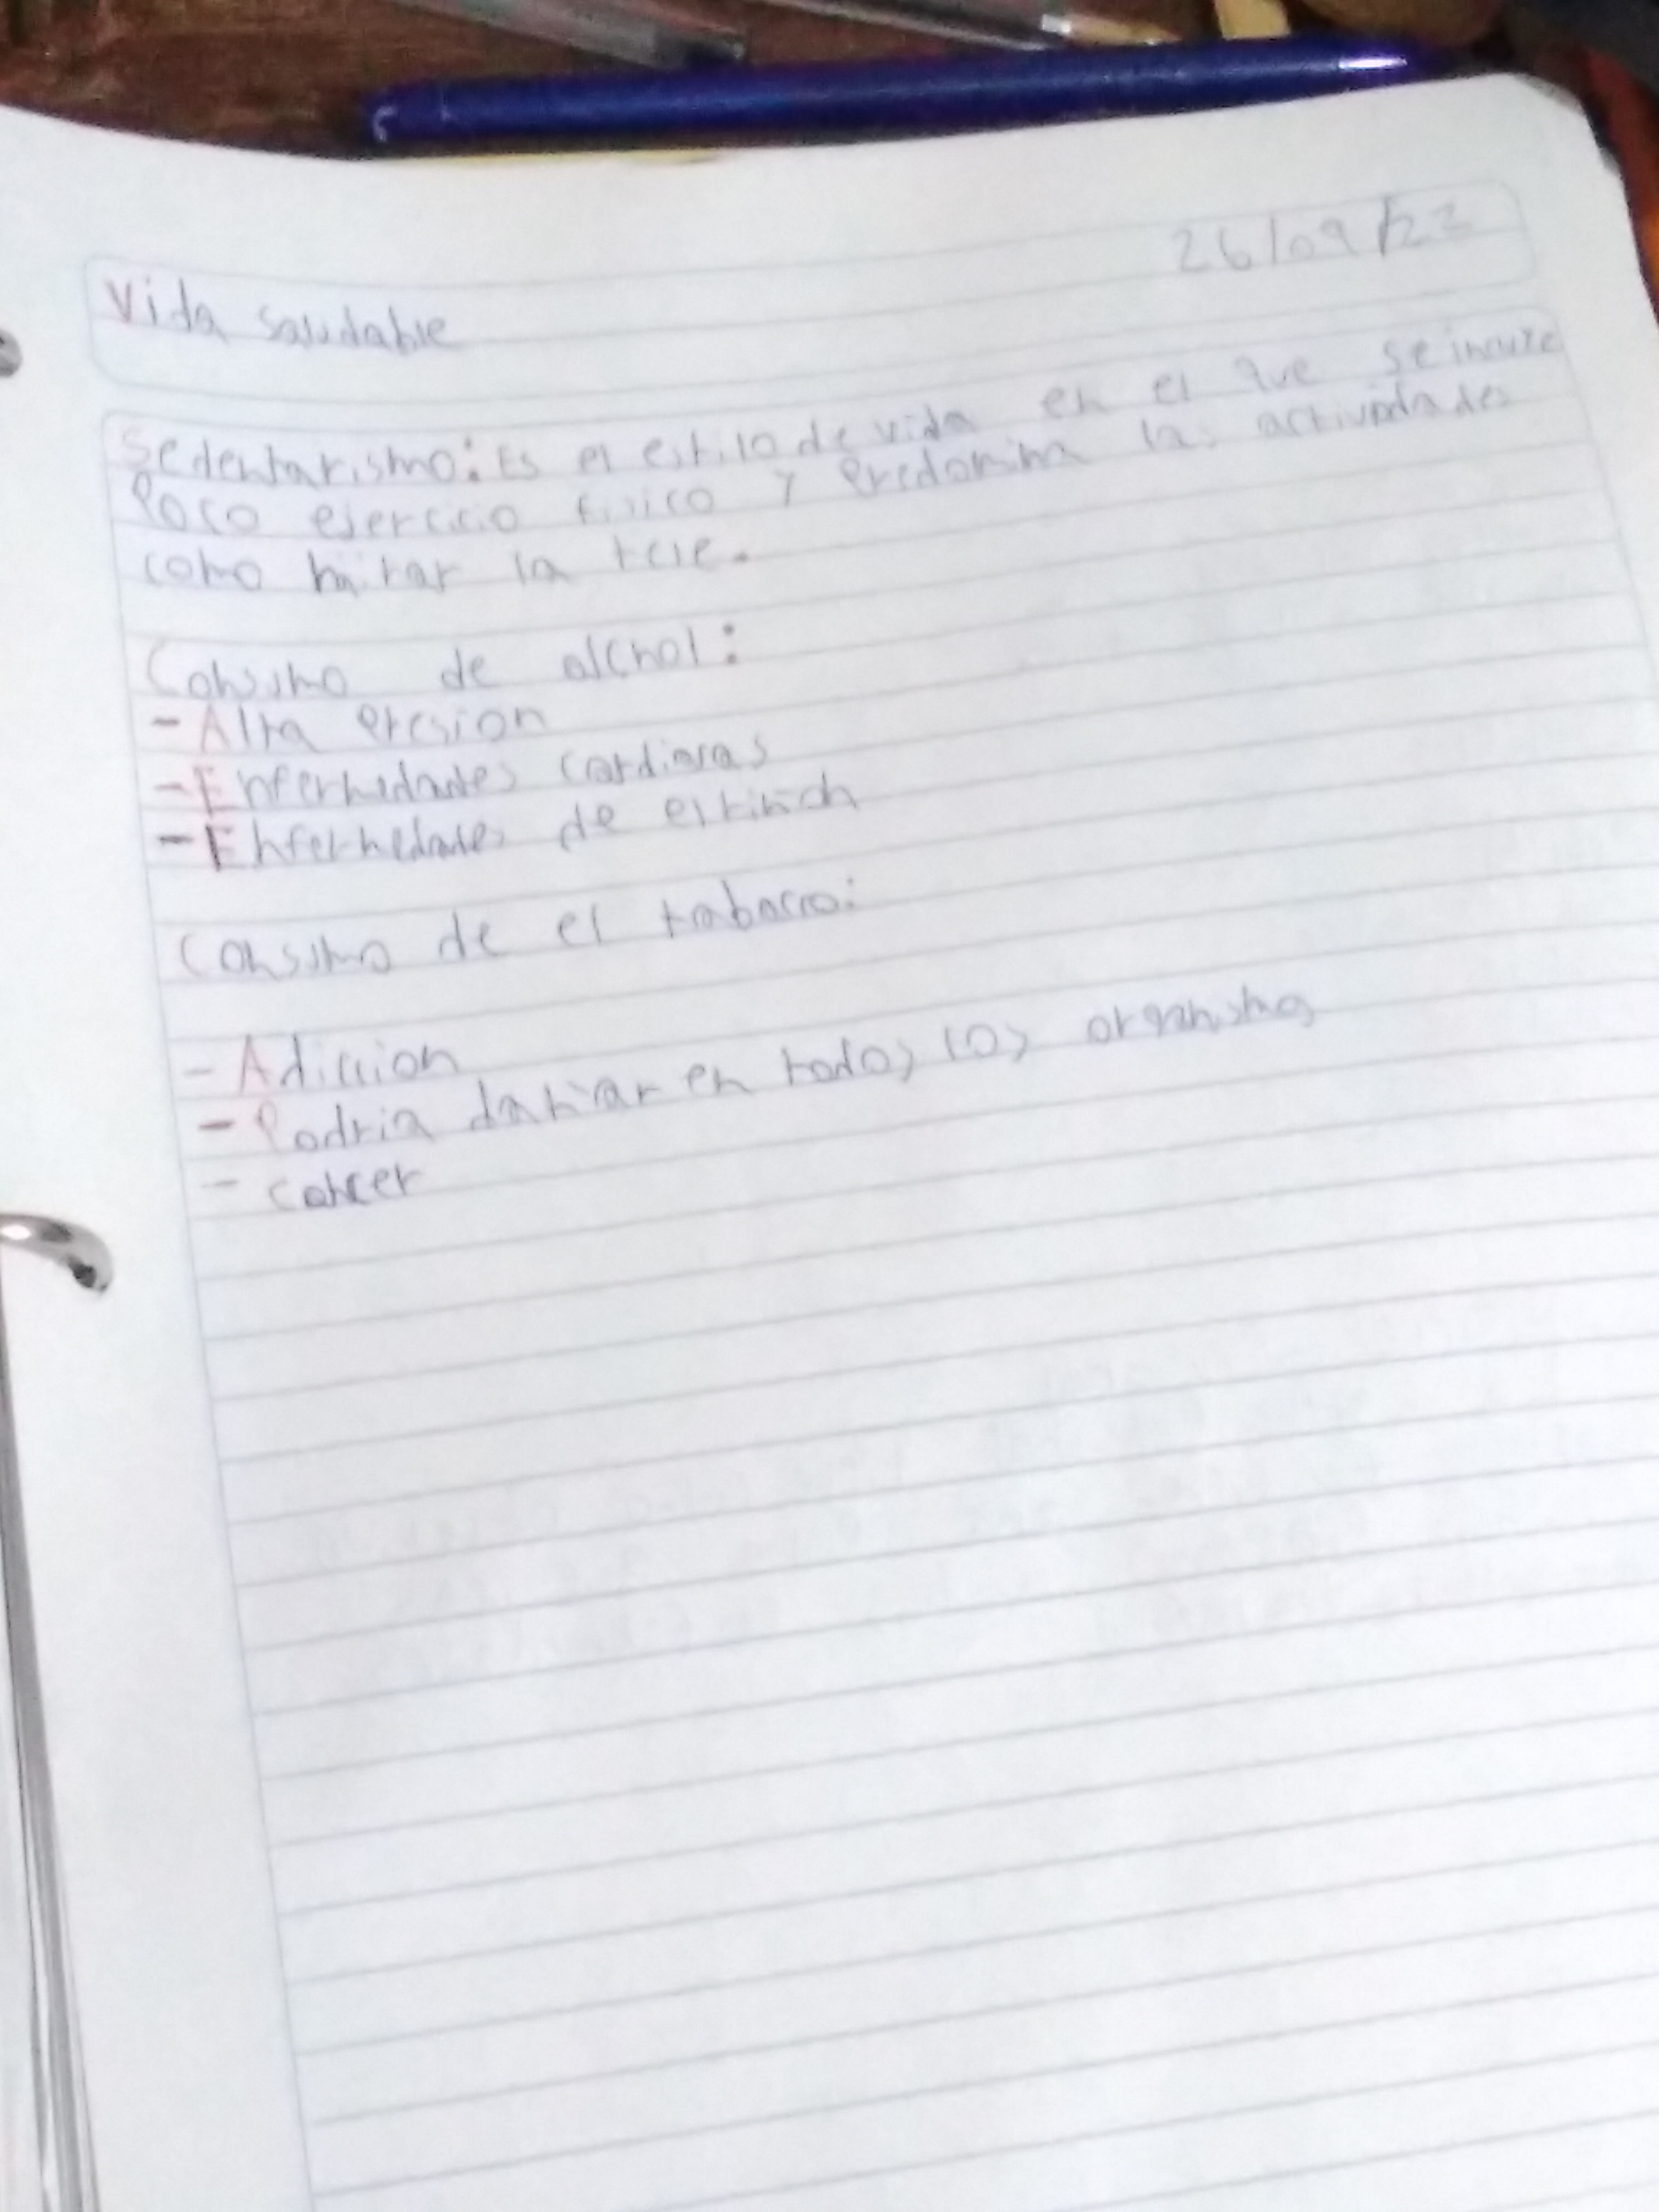 26/09/22
Vida saludable
Sedentarismo: Es el estilo de vida en el que se incluye
Poco ejercicio fisico y Predomina las actividades
como mirar la tele.
Consumo de alchol:
- Alta Presion
- Enfermedades cardiacas
- Enfermedades de
Consumo de el tabacco:
- Adiccion
- Podria dañar en todos los organismos
- cancer